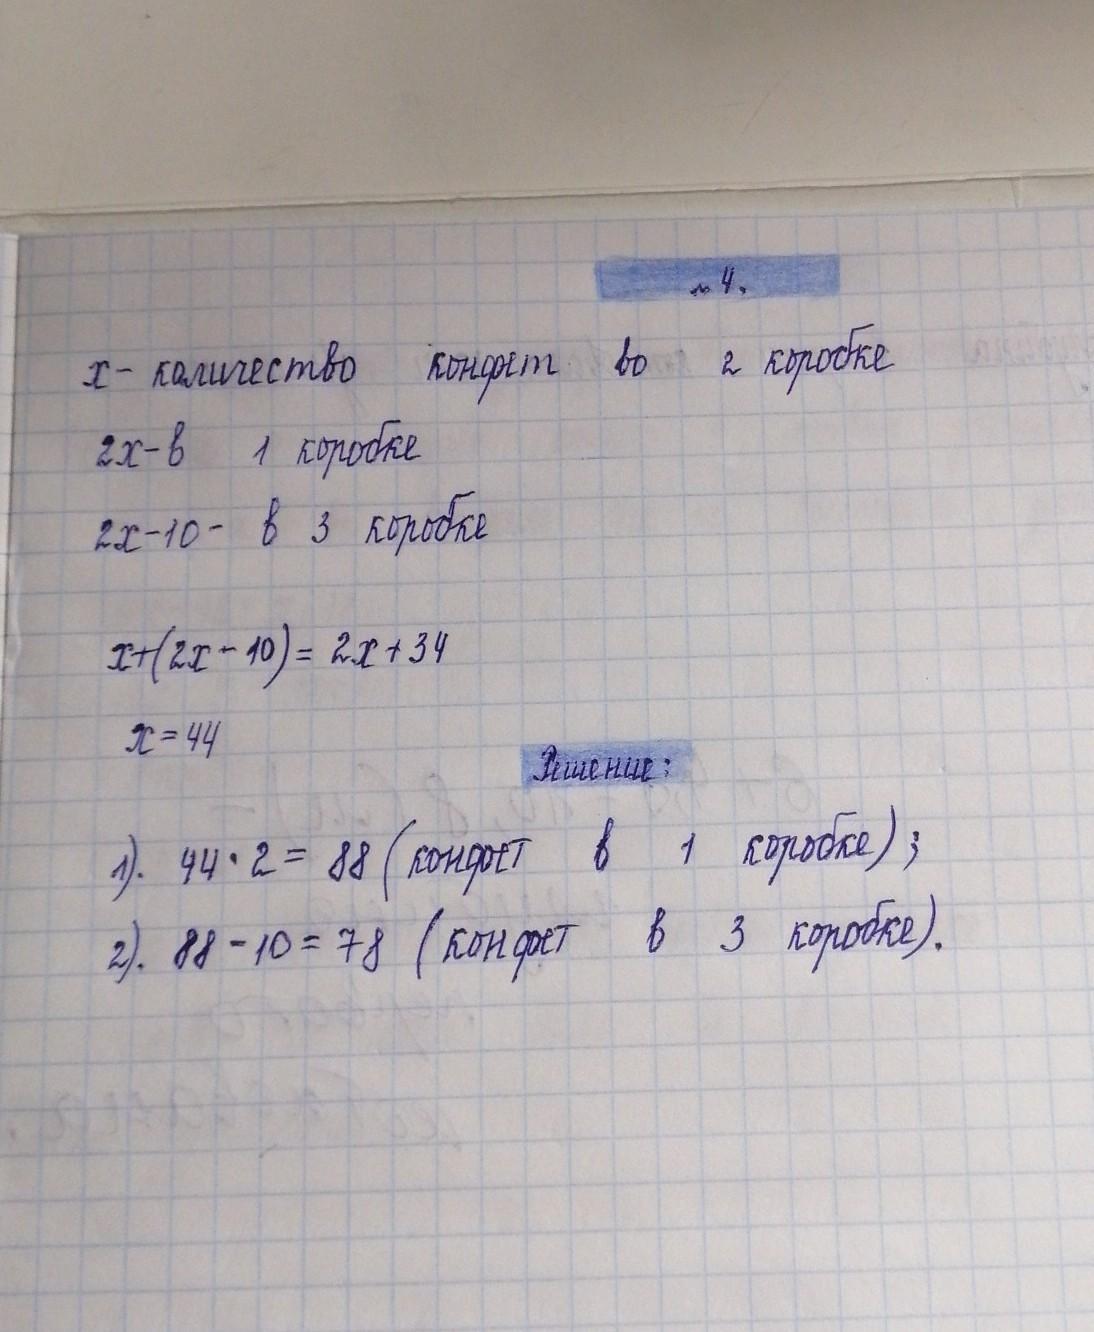 № 4.
x - количество конфет во 2 коробке
2x - в 1 коробке
2x - 10 - в 3 коробке
x+(2x - 10) = 2x + 34
x = 44
Решение:
1). 44 · 2 = 88 (конфет в 1 коробке);
2). 88 - 10 = 78 (конфет в 3 коробке).